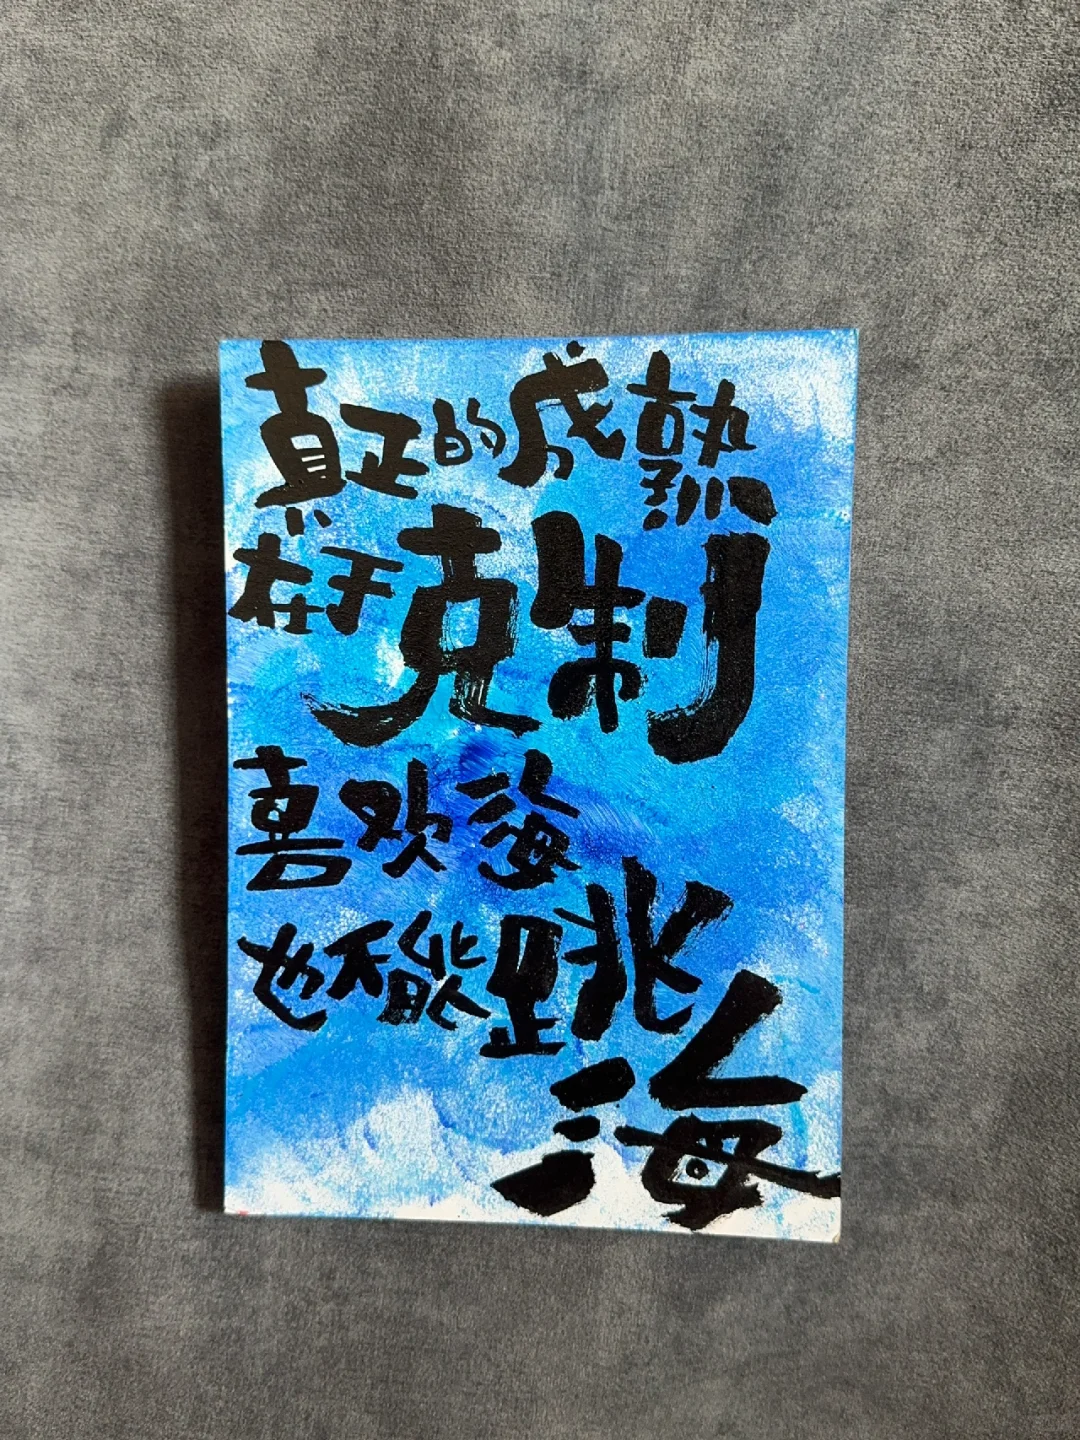 真正的成熟
在于克制
喜欢海
也不能跳
海